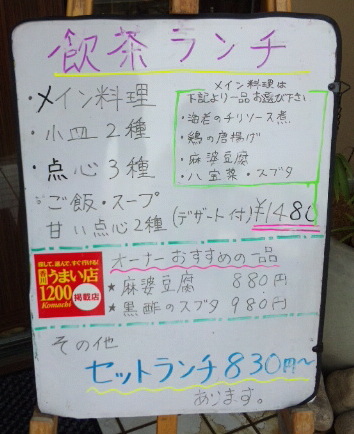 飲茶ランチ
・メイン料理
・小皿2種
・点心3種
・ご飯・スープ
甘い点心2種(デザート付)¥1480
メイン料理は
下記より一品お選び下さい
・海老のチリソース煮
・鶏の唐揚げ
・麻婆豆腐
・八宝菜・スブタ
探して、選んで、すぐ行ける!
うまい店
1200
Komachi
掲載店
オーナーおすすめの一品
★麻婆豆腐 880円
★黒酢のスブタ 980円
その他
セットランチ830円〜
あります。